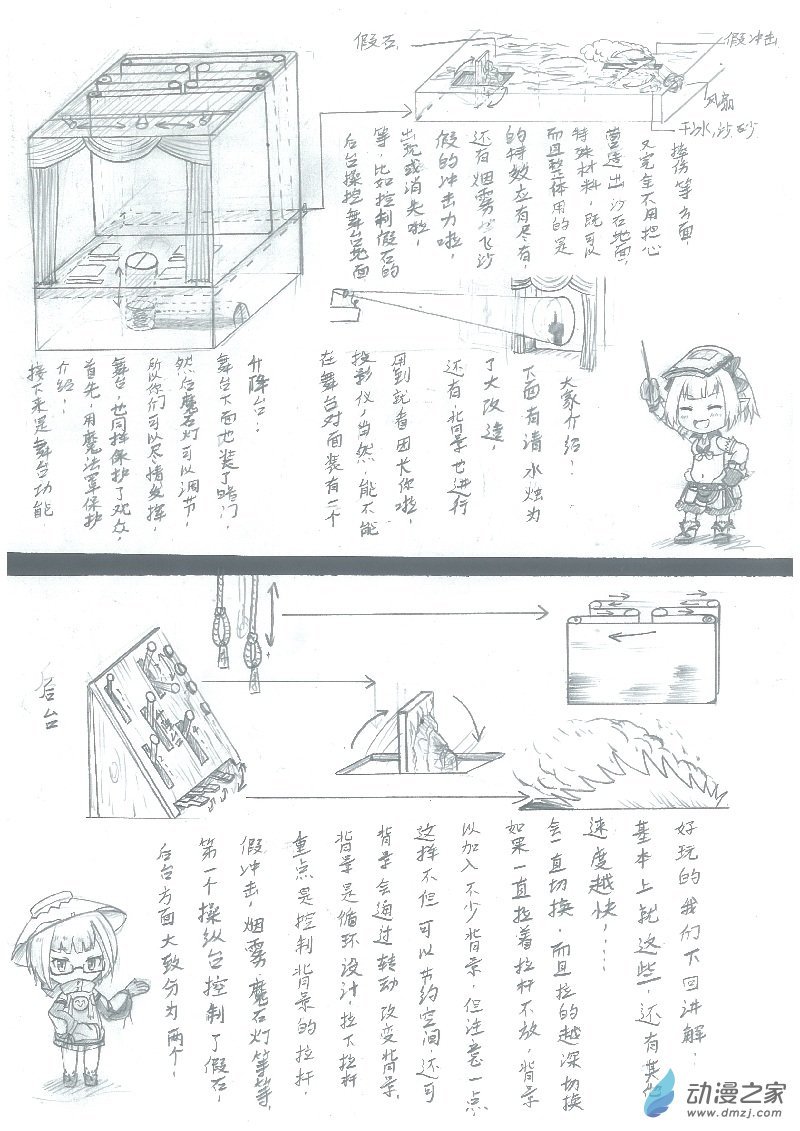 假石
假冲击
风扇
干水，沙砂
接下来是舞台功能
介绍：
首先，用魔法罩保护
舞台，也同样保护了观众，
所以你们可以尽情发挥，
然后魔石灯可以调节，
舞台下面也装了暗门，
升降台；
后台操控舞台地面
等，比如控制假石的
出现或消失啦，
假的冲击力啦，
还有烟雾，飞沙
的特效应有尽有，
而且整体用的是
特殊材料，既可以
营造出沙石地面，
又完全不用担心
摔伤等方面，
在舞台对面装有一个
投影仪，当然，能不能
用到就看团长你啦，
还有，背景也进行
了大改造，
下面有请水烛为
大家介绍！
后台
后台方面大致分为两个，
第一个操纵台控制了假石，
假冲击，烟雾，魔石灯等等，
重点是控制背景的拉杆，
背景是循环设计，拉下拉杆
背景会通过转动改变背景，
这样不但可以节约空间，还可
以加入不少背景，但注意一点，
如果一直拉着拉杆不放，背景
会一直切换，而且拉的越深切换
速度越快，……
基本上就这些，还有其他
好玩的我们下回讲解；
动漫之家
www.dmzj.com